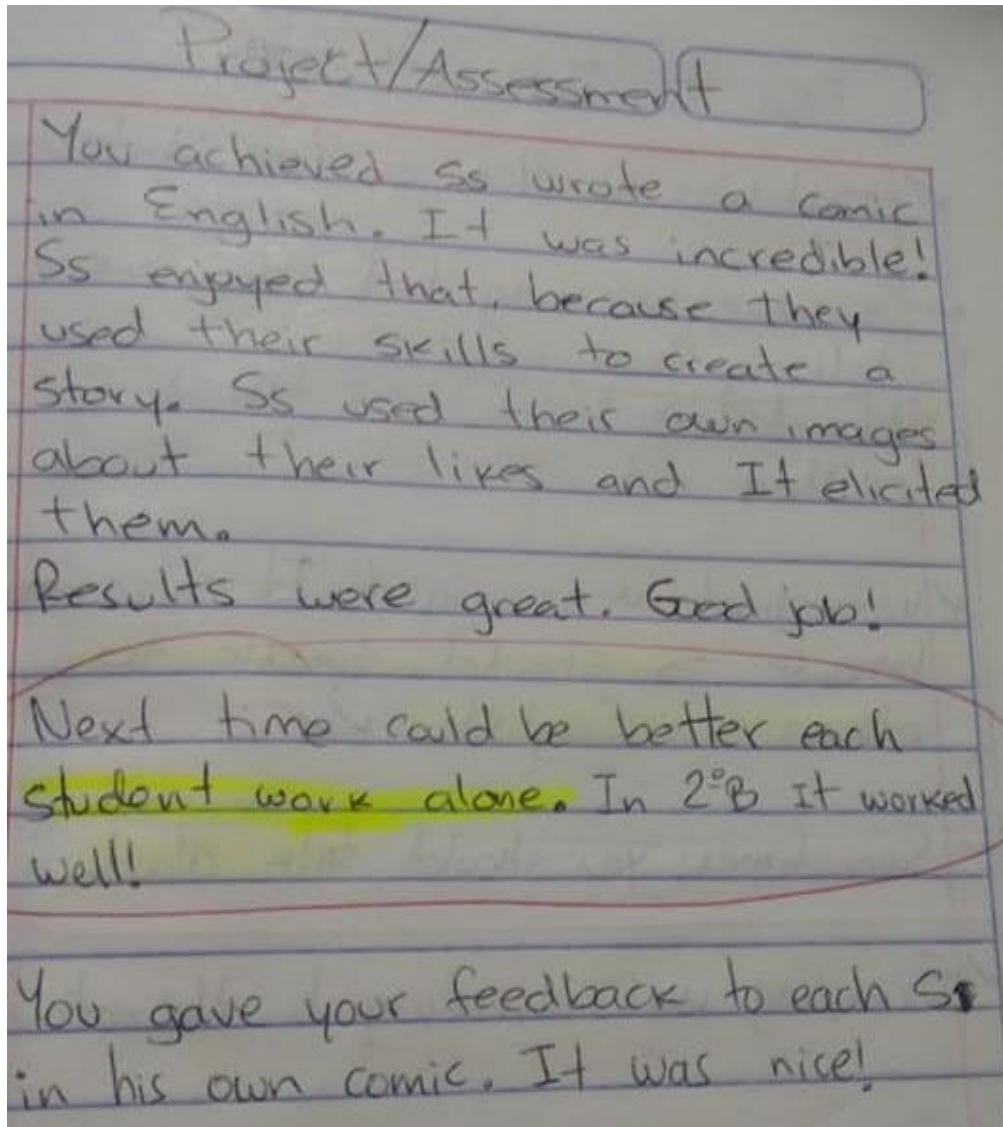 Project/Assessment
You achieved Ss wrote a comic
in English. It was incredible!
Ss enjoyed that, because they
used their skills to create a
story. Ss used their own images
about their likes and It elicited
them.
Results were great. Good job!
Next time could be better each
student work alone. In 2°B It worked
well!
You gave your feedback to each Ss
in his own comic. It was nice!